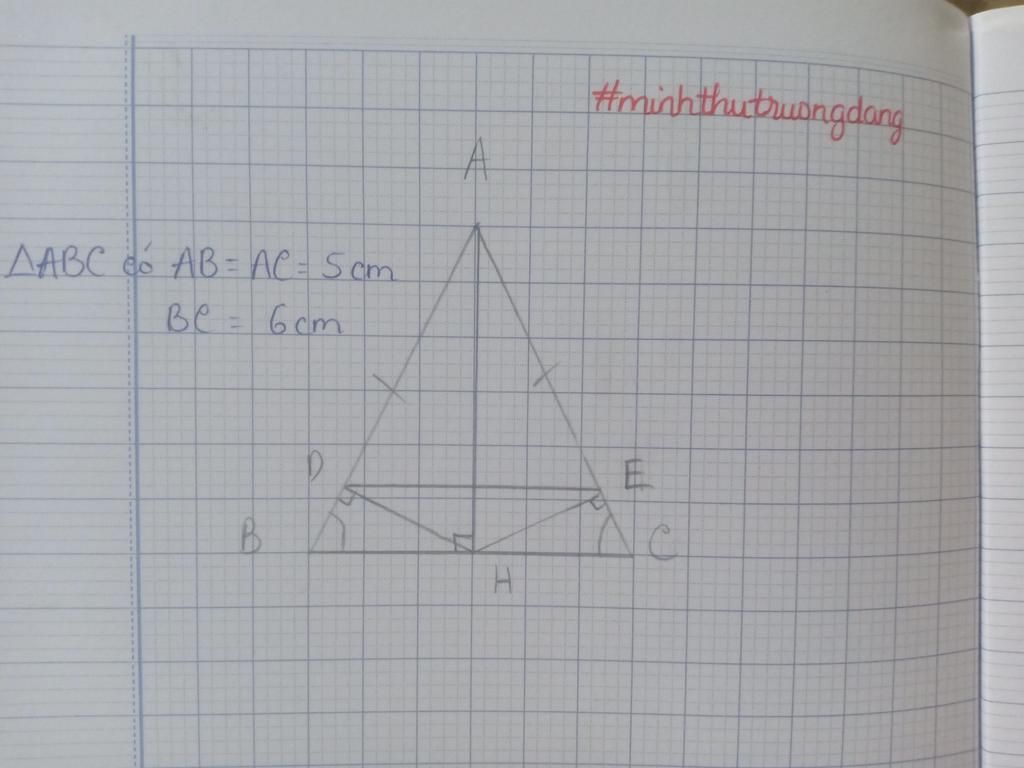 #minhthutruongdang
A
∆ABC có AB = AC = 5cm
BC = 6cm
D
E
B
C
H